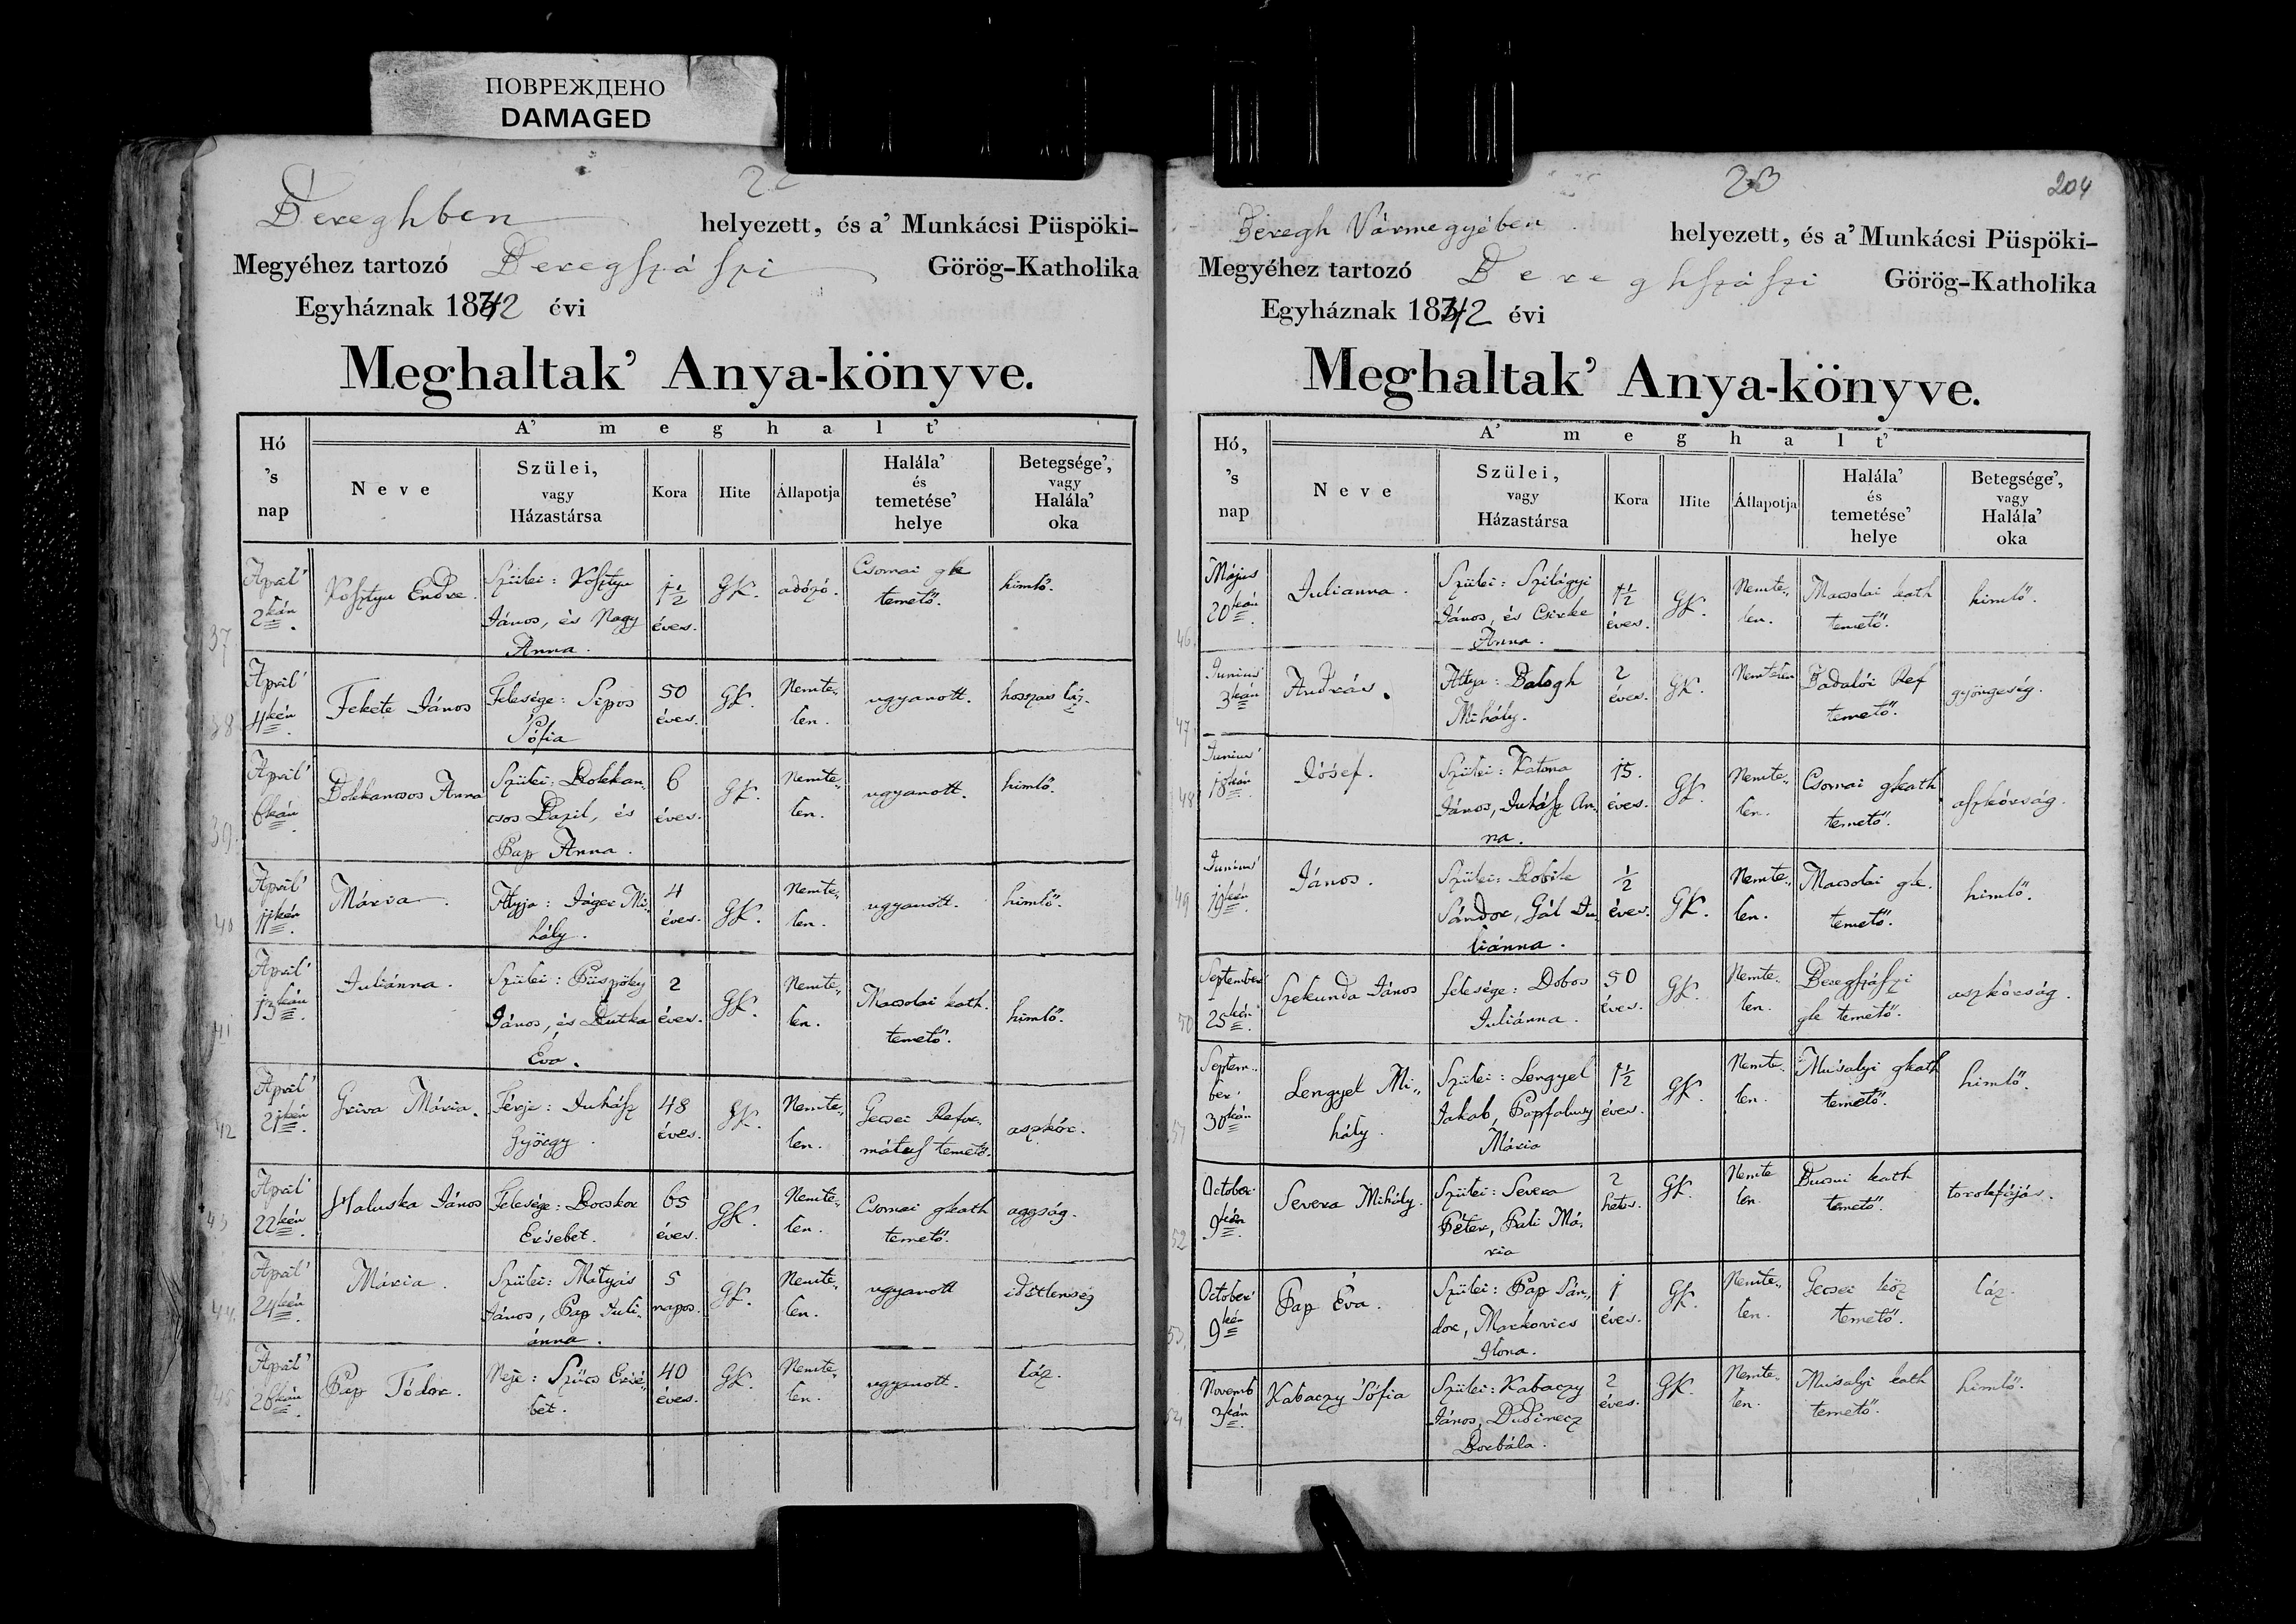 ПОВРЕЖДЕНО
DAMAGED
22
Bereghben helyezett, és a' Munkácsi Püspöki-
Megyéhez tartozó Beregszászi Görög-Katholika
Egyháznak 1842 évi
Meghaltak' Anya-könyve.
Hó 's nap | A' meghalt'
Neve | Szülei, vagy Házastársa | Kora | Hite | Állapotja | Halála' és temetése' helye | Betegsége', vagy Halála' oka
37 April' 2kán | Kosztyu Endre | Szülei: Kosztyu János, és Nagy Anna. | 1½ éves. | GK. | adózó. | Csomai gk temető. | himlő.
38 April' 4kén | Fekete János | Felesége: Sipos Sófia | 50 éves. | GK. | Nemte„len. | ugyanott. | hosszas láz.
39. April' 6kán | Bokkancsos Anna | Szülei: Bokkan„csos Bazil, és Pap Anna. | 6 éves. | GK. | Nemte„len. | ugyanott. | himlő.
40 April' 11kén | Mária. | Attyja: Jáger Mi„hály. | 4 éves. | GK. | Nemte„len. | ugyanott. | himlő.
41 April' 13kán | Juliánna. | Szülei: Püspöky János, és Dutka Éva. | 2 éves. | GK. | Nemte„len. | Macsolai kath. temető. | himlő.
42 April' 21kén | Griva Mária. | Férje: Juhász György. | 48 éves. | GK. | Nemte„len. | Gecsei Refor„mátus temető. | aszkór.
43 April' 22kén | Haluska János | Felesége: Bocskor Ersébet. | 65 éves. | GK. | Nemte„len. | Csomai gkath temető. | aggság.
44. April' 24kén | Mária. | Szülei: Mátyás János, Pap Juli„ánna. | 5 napos. | GK. | Nemte„len. | ugyanott | idétlenség
45 April' 26kán | Pap Tódor. | Neje: Szűcs Ersé„bet. | 40 éves. | GK. | Nemte„len. | ugyanott. | láz.
23
204
Beregh Vármegyében helyezett, és a' Munkácsi Püspöki-
Megyéhez tartozó Bereghszászi Görög-Katholika
Egyháznak 1842 évi
Meghaltak' Anya-könyve.
Hó, 's nap | A' meghalt'
Neve | Szülei, vagy Házastársa | Kora | Hite | Állapotja | Halála' és temetése' helye | Betegsége', vagy Halála' oka
46. Május 20kán | Julianna. | Szülei: Szilágyi János, és Csirke Anna. | 1½ éves. | GK. | Nemte„len. | Macsolai kath temető. | himlő.
47 Junius' 3kán | András. | Attya: Balogh Mihály. | 2 éves. | GK. | Nemtelen | Badalói Ref temető. | gyöngeség.
48 Junius' 18kán | Jósef. | Szülei: Katona János, Juhász An„na. | 15. éves. | GK. | Nemte„len. | Csomai gkath temető. | aszkórság.
49 Junius' 19kén | János. | Szülei: Bobik Sándor, Gál Ju„liánna. | ½ éves. | GK. | Nemte„len. | Macsolai gk. temető. | himlő.
50 September' 25kén | Szekunda János | felesége: Dobos Juliánna. | 50 éves. | GK. | Nemte„len. | Beregszászi gk temető. | aszkórság.
51 Septem„ber' 30kán | Lengyel Mi„hály. | Szülei: Lengyel Jakab, Papfalusy Mária | 1½ éves. | GK. | Nemte„len. | Músalyi gkath temető. | himlő.
52 October' 9kén | Severa Mihály. | Szülei: Severa Péter, Pali Má„ria | 2 hetes. | GK. | Nemte len. | Bucsui kath temető. | torokfájás.
53. October' 9kén | Pap Éva. | Szülei: Pap Sán„dor, Markovics Ilona. | 1 éves. | GK. | Nemte„len. | Gecsei köz temető. | láz.
54 Novemb 3kán | Kabaczy Sófia | Szülei: Kabaczy János, Dudinecz Borbála. | 2 éves. | GK. | Nemte„len. | Músalyi kath temető. | himlő.